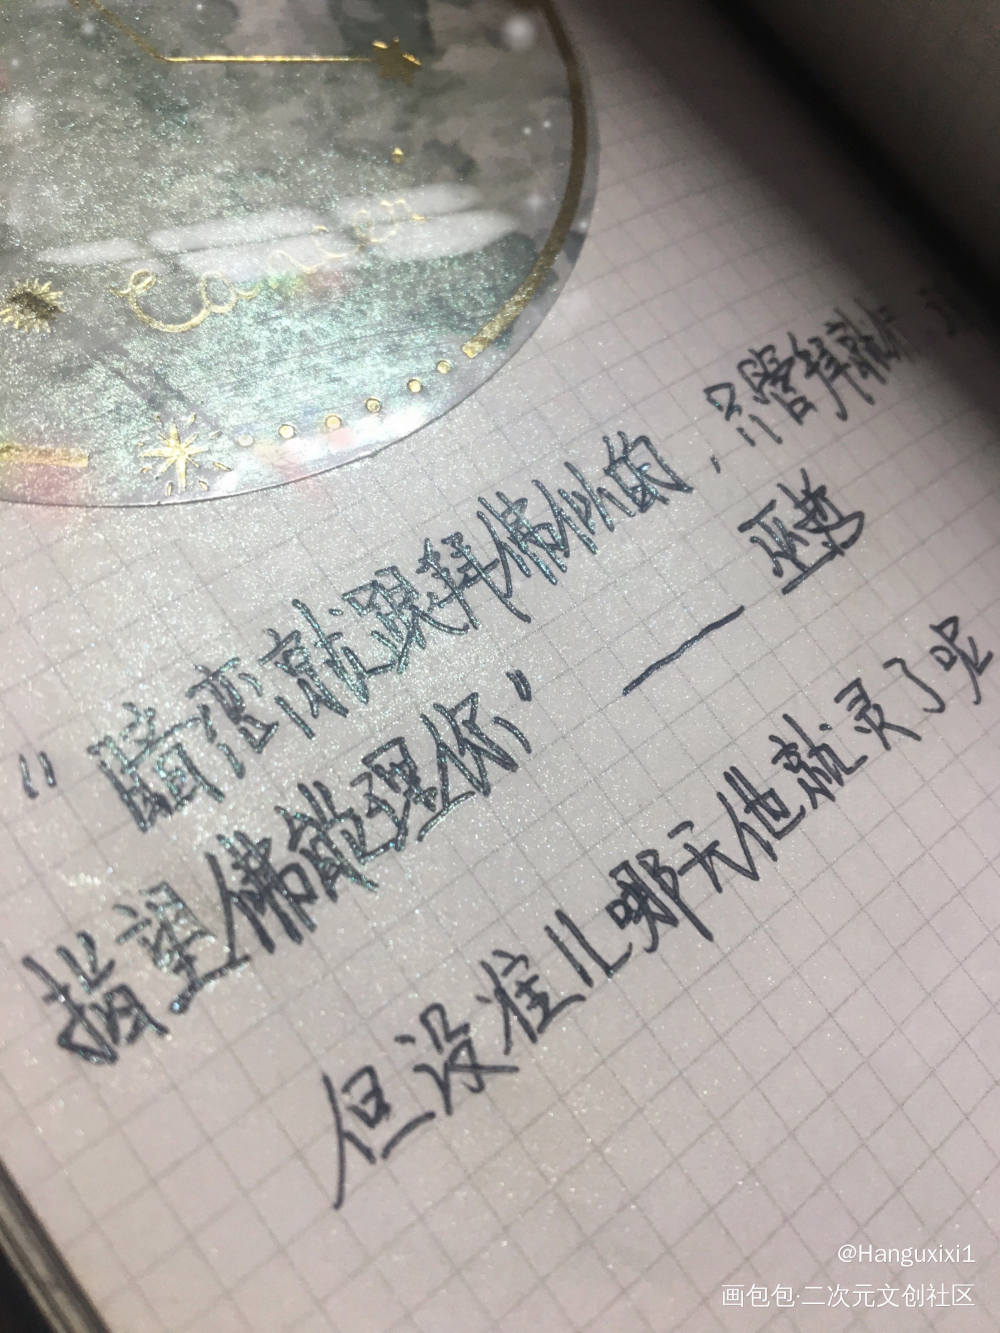 Cancer
“暗恋就跟拜佛似的，只管拜就
指望佛能理你” —— 巫哲
但没准儿哪天他就灵了呢
@Hanguxixi1
画包包·二次元文创社区